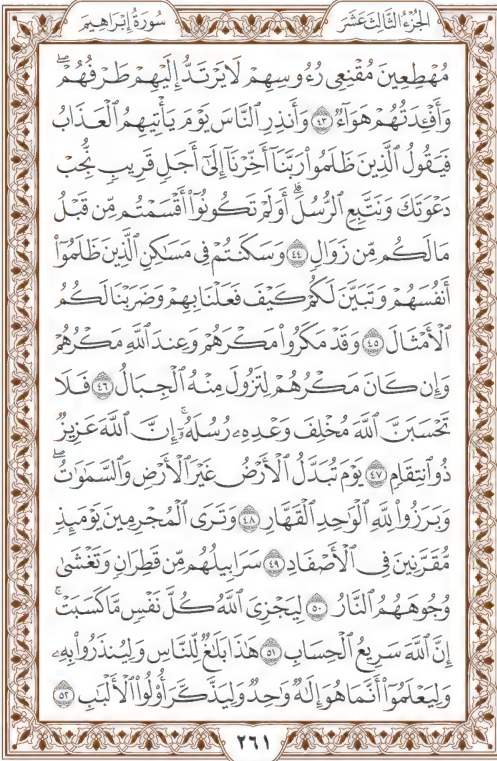 الجُزْءُ الثَّالِثَ عَشَرَ
سُورَةُ إِبْرَاهِيمَ
مُهْطِعِينَ مُقْنِعِى رُءُوسِهِمْ لَا يَرْتَدُّ إِلَيْهِمْ طَرْفُهُمْ ۖ
وَأَفْـِٔدَتُهُمْ هَوَآءٌ ٤٣ وَأَنذِرِ ٱلنَّاسَ يَوْمَ يَأْتِيهِمُ ٱلْعَذَابُ
فَيَقُولُ ٱلَّذِينَ ظَلَمُوا۟ رَبَّنَآ أَخِّرْنَآ إِلَىٰٓ أَجَلٍ قَرِيبٍ نُّجِبْ
دَعْوَتَكَ وَنَتَّبِعِ ٱلرُّسُلَ ۗ أَوَلَمْ تَكُونُوٓا۟ أَقْسَمْتُم مِّن قَبْلُ
مَا لَكُم مِّن زَوَالٍ ٤٤ وَسَكَنتُمْ فِى مَسَـٰكِنِ ٱلَّذِينَ ظَلَمُوٓا۟
أَنفُسَهُمْ وَتَبَيَّنَ لَكُمْ كَيْفَ فَعَلْنَا بِهِمْ وَضَرَبْنَا لَكُمُ
ٱلْأَمْثَالَ ٤٥ وَقَدْ مَكَرُوا۟ مَكْرَهُمْ وَعِندَ ٱللَّهِ مَكْرُهُمْ
وَإِن كَانَ مَكْرُهُمْ لِتَزُولَ مِنْهُ ٱلْجِبَالُ ٤٦ فَلَا
تَحْسَبَنَّ ٱللَّهَ مُخْلِفَ وَعْدِهِۦ رُسُلَهُۥٓ ۗ إِنَّ ٱللَّهَ عَزِيزٌ
ذُو ٱنتِقَامٍ ٤٧ يَوْمَ تُبَدَّلُ ٱلْأَرْضُ غَيْرَ ٱلْأَرْضِ وَٱلسَّمَـٰوَٰتُ ۖ
وَبَرَزُوا۟ لِلَّهِ ٱلْوَٰحِدِ ٱلْقَهَّارِ ٤٨ وَتَرَى ٱلْمُجْرِمِينَ يَوْمَئِذٍ
مُّقَرَّنِينَ فِى ٱلْأَصْفَادِ ٤٩ سَرَابِيلُهُم مِّن قَطِرَانٍ وَتَغْشَىٰ
وُجُوهَهُمُ ٱلنَّارُ ٥٠ لِيَجْزِىَ ٱللَّهُ كُلَّ نَفْسٍ مَّا كَسَبَتْ ۚ
إِنَّ ٱللَّهَ سَرِيعُ ٱلْحِسَابِ ٥١ هَـٰذَا بَلَـٰغٌ لِّلنَّاسِ وَلِيُنذَرُوا۟ بِهِۦ
وَلِيَعْلَمُوٓا۟ أَنَّمَا هُوَ إِلَـٰهٌ وَٰحِدٌ وَلِيَذَّكَّرَ أُو۟لُوا۟ ٱلْأَلْبَـٰبِ ٥٢
٢٦١